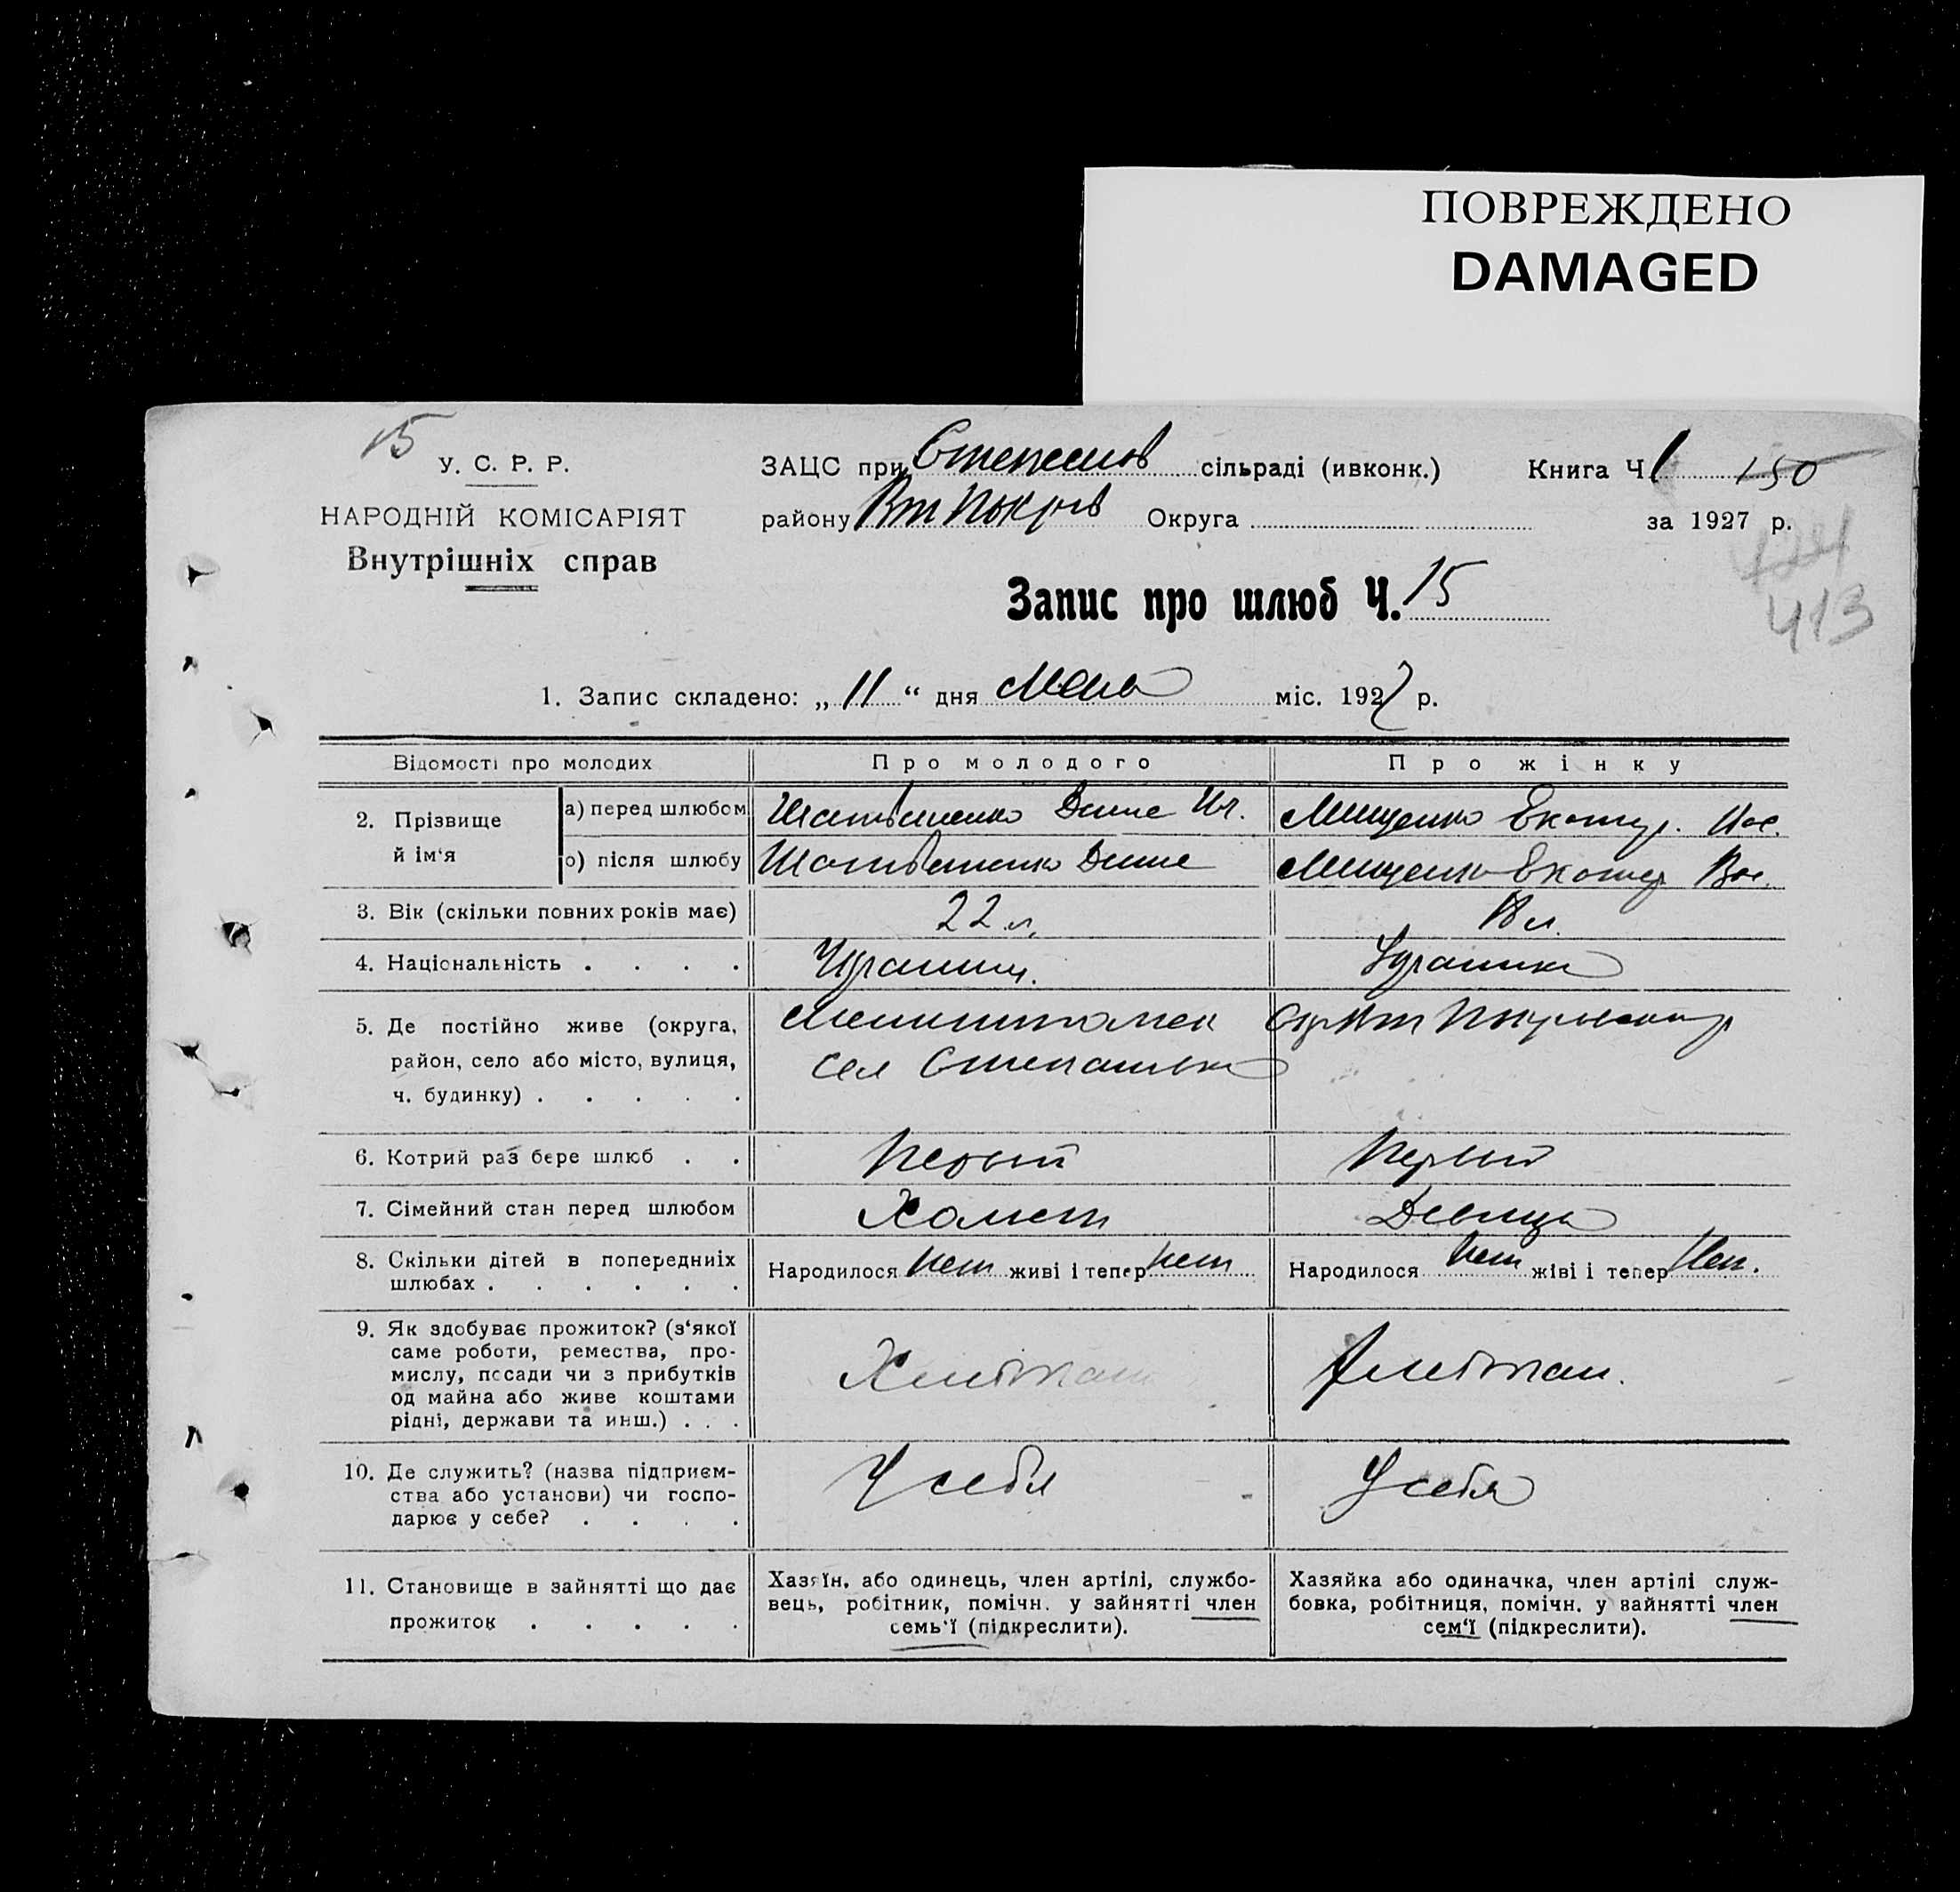 ПОВРЕЖДЕНО
DAMAGED
15
У. С. Р. Р.
НАРОДНІЙ КОМІСАРІЯТ
Внутрішніх справ
ЗАЦС при сільраді (ивконк.)
району Округа
Книга Ч 1 150
за 1927 р.
413
Запис про шлюб Ч. 15
1. Запис складено: „ 11 “ дня міс. 1927 р.
Відомості про молодих Про молодого Про жінку
2. Прізвище й ім‘я
а) перед шлюбом Мищенко
о) після шлюбу Мищенко
3. Вік (скільки повних років має) 22 л. 18 л.
4. Національність . . . .
5. Де постійно живе (округа,
район, село або місто, вулиця,
ч. будинку) . . . . .
сел Степановка
6. Котрий раз бере шлюб . . Первый Первый
7. Сімейний стан перед шлюбом Холост Девица
8. Скільки дітей в попередниіх
шлюбах . . . . . .
Народилося нет живі і тепер нет Народилося нет жіві і тепер нет.
9. Як здобуває прожиток? (з‘якої
саме роботи, ремества, про-
мислу, посади чи з прибутків
од майна або живе коштами
рідні, держави та инш.) . . .
10. Де служить? (назва підприєм-
ства або установи) чи госпо-
дарює у себе? . . . .
У себя У себя
11. Становище в зайнятті що дає
прожиток . . . . .
Хазяїн, або одинець, член артілі, службо-
вець, робітник, помічн. у зайнятті член
семь‘ї (підкреслити).
Хазяйка або одиначка, член артілі служ-
бовка, робітниця, помічн. у зайнятті член
сем‘ї (підкреслити).